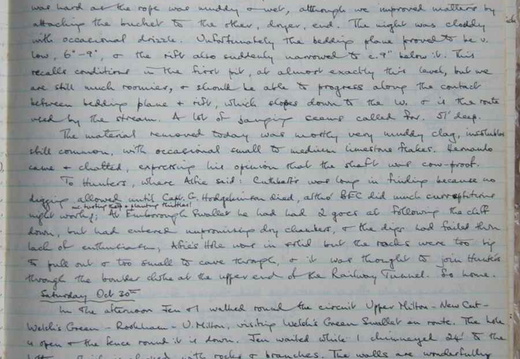 was hard as the rope was muddy & wet, although we improved matters by
attaching the bucket to the other, dryer, end. The night was cloudy
with occasional drizzle. Unfortunately the bedding plane proved to be v.
low, 6"-9", & the rift also suddenly narrowed to c. 9" below it. This
recalls conditions in the first pit, at almost exactly this level, but we
are still much roomier, & should be able to progress along the contact
between bedding plane & rift, which slopes down to the W. & is the route
used by the stream. A lot of jumping seems called for. 51' deep.
The material removed today was mostly very muddy clay,
still common, with occasional small to medium limestone flakes.
came & chatted, expressing his opinion that the shaft was cow-proof.
To Hunters, where Alfie said: Cuthbert's was long in finding because no
digging allowed until Capt. G. Hodgkinson died, altho' BEC did much surreptitious
night working; At Emborough Swallet he had had 2 goes at following the cliff
down, but had entered unpromising dry chambers, & the digs had failed from
lack of enthusiasm, Alfie's Hole was in solid but the rocks were too big
to pull out & too small to cave through, & it was thought to join Hunters
through the boulder choke at the upper end of the Railway Tunnel. So home.
Saturday Oct 30th
In the afternoon Jen & I walked round the circuit Upper Milton - New Cut -
Welsh's Green - - U. Milton, visiting Welsh's Green Swallet en route. The hole
is open & the fence round it is down. Jen waited while I chimneyed 24' to the
with rocks & branches. The walls are wonderfully